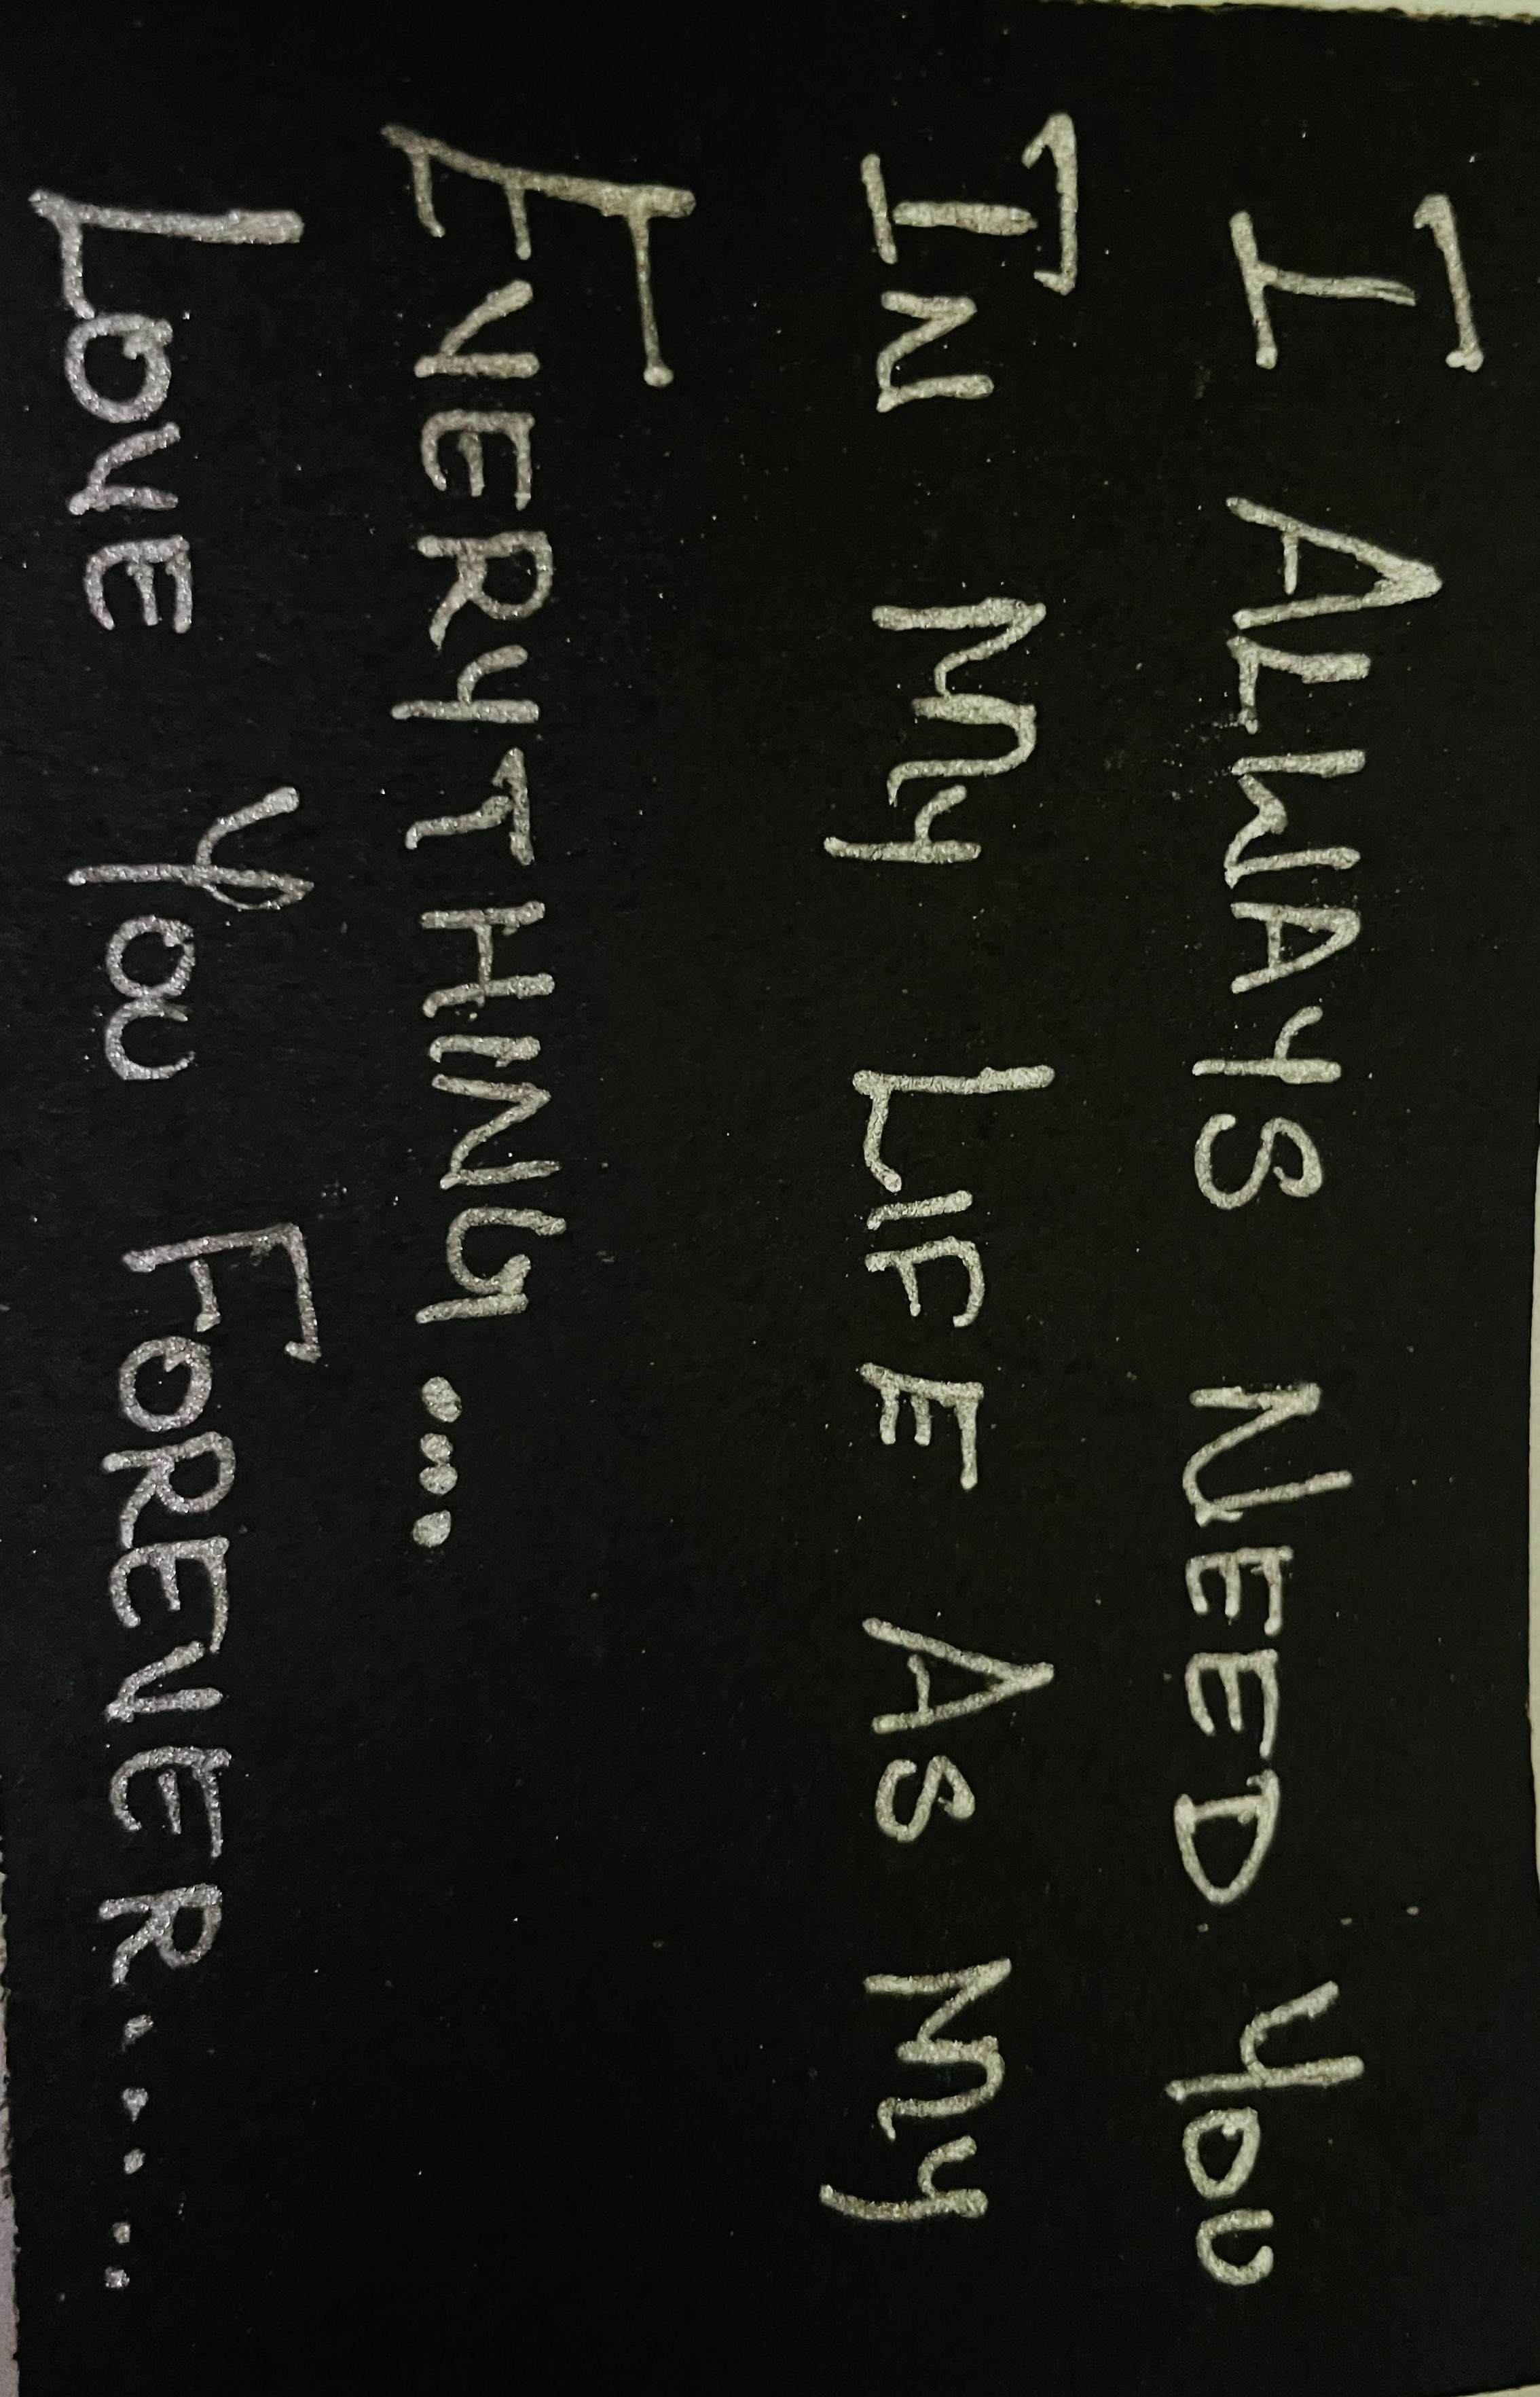 I ALWAYS NEED YOU
IN MY LIFE AS MY
EVERYTHING ....
LOVE YOU FOREVER......